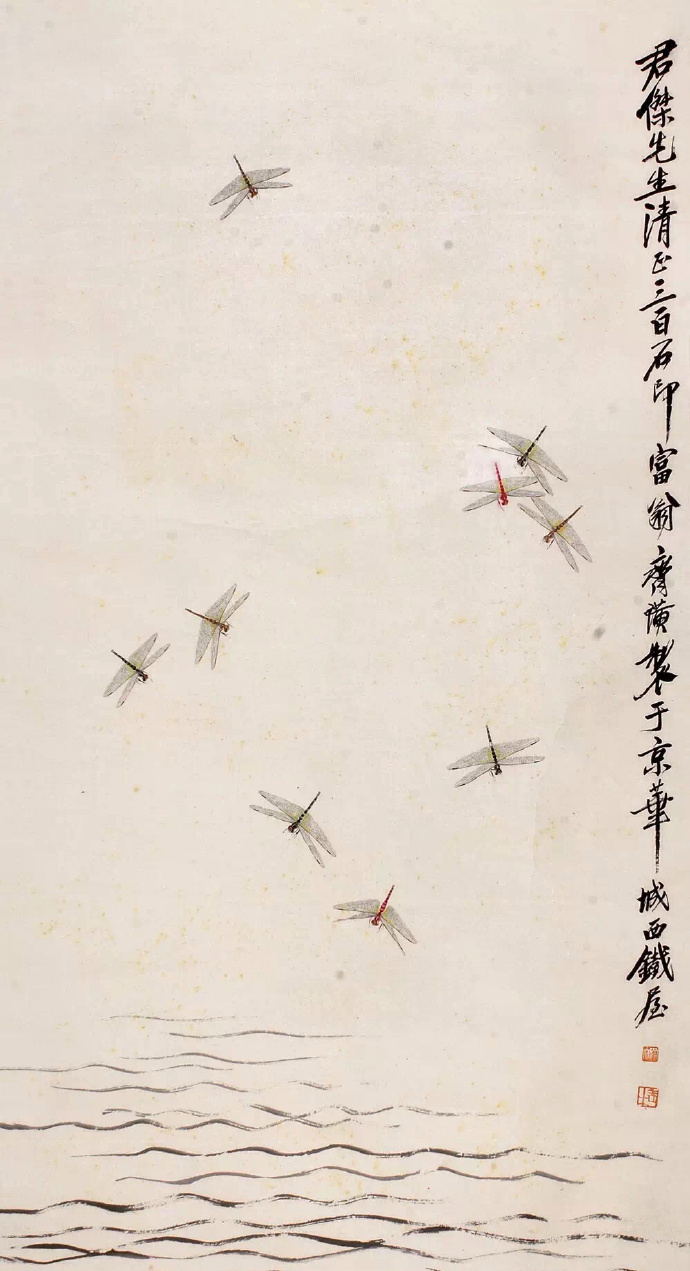 君傑先生清正三百石印富翁齊璜製于京華城西鐵屋